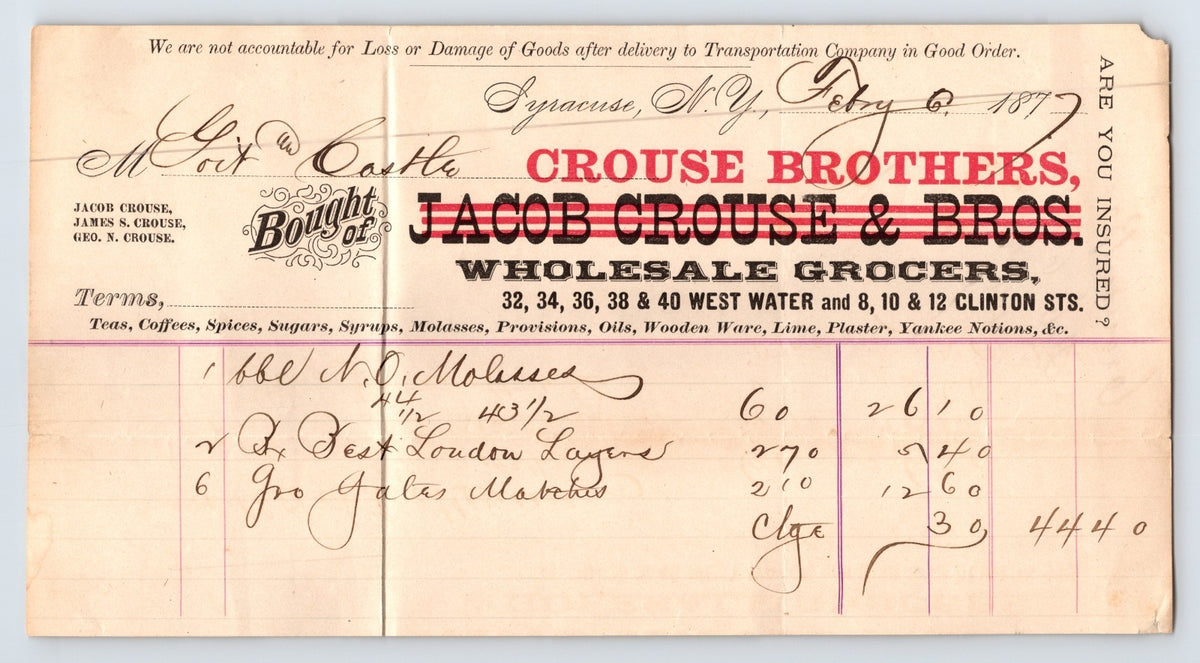 We are not accountable for Loss or Damage of Goods after delivery to Transportation Company in Good Order.
Syracuse, N.Y., Febry 6. 1877
M Goit & Castle
CROUSE BROTHERS,
JACOB CROUSE,
JAMES S. CROUSE,
GEO. N. CROUSE.
Bought of
JACOB CROUSE & BROS.
WHOLESALE GROCERS,
Terms,
32, 34, 36, 38 & 40 WEST WATER and 8, 10 & 12 CLINTON STS.
Teas, Coffees, Spices, Sugars, Syrups, Molasses, Provisions, Oils, Wooden Ware, Lime, Plaster, Yankee Notions, &c.
ARE YOU INSURED?
1 bbl N.O. Molasses
44
1/2 43 1/2 60 26 10
2 Bx Best London Layers 270 5 40
6 Gro Gates Matches 210 12 60
Ctge 30 44 40